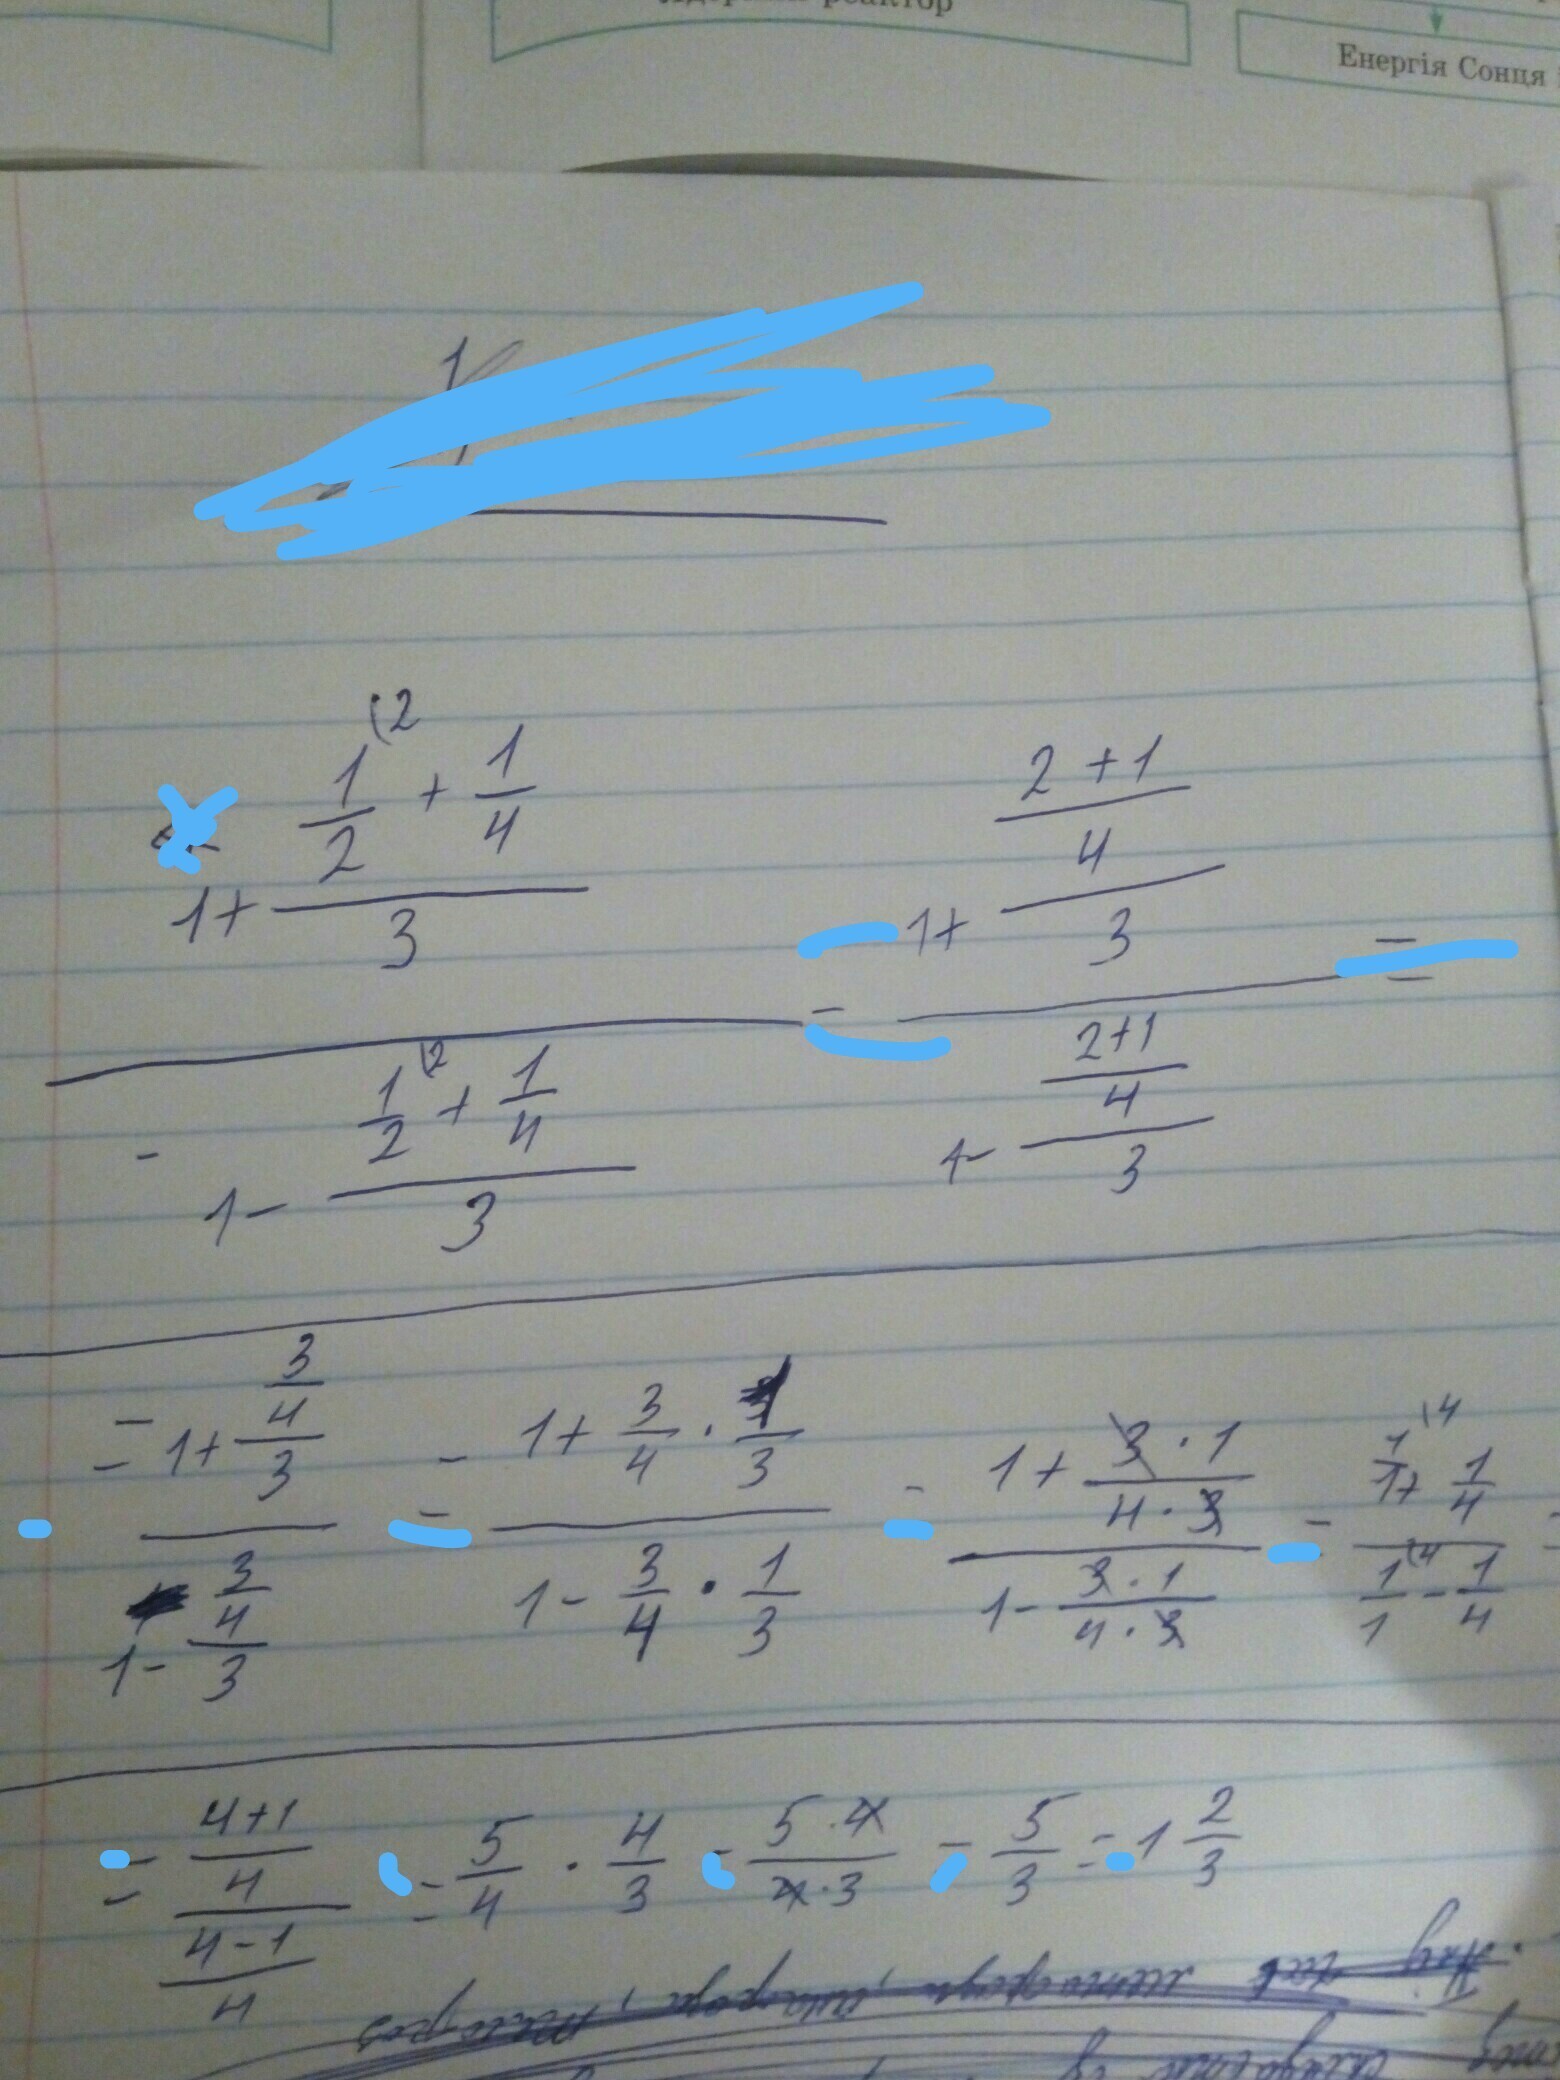 реактор
Енергія Сонця
1
1 + (1/2 + 1/4)/3 (2
= 1 + ((2 + 1)/4)/3 =
1 - (1/2 + 1/4)/3 (2
1 - ((2+1)/4)/3
= (1 + (3/4)/3)/(1 - (3/4)/3) = (1 + 3/4 · 1/3)/(1 - 3/4 · 1/3) = (1 + (3 · 1)/(4 · 3))/(1 - (3 · 1)/(4 · 3)) = (1/1 + 1/4)/(1/1 - 1/4) =
= ((4+1)/4)/((4-1)/4) = 5/4 · 4/3 = (5 · 4)/(4 · 3) = 5/3 = 1 2/3